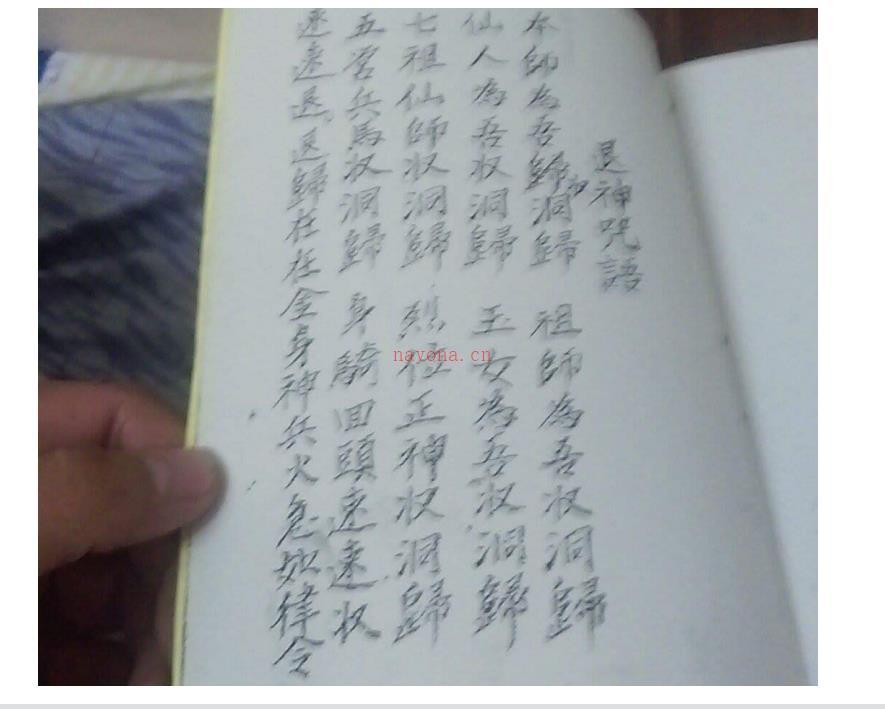 退神咒語
本師為吾歸收洞歸 祖師為吾收洞歸
仙人為吾收洞歸 玉女為吾收洞歸
七祖仙師收洞歸 烈位正神收洞歸
五营兵馬收洞歸 身騎回頭速速收
速速退退歸在在金身神兵火急如律令
nayona.cn